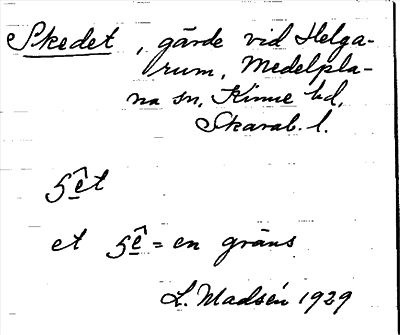 Skedet, gärde vid Helga-
rum, Medelpla-
na sn, Kinne hd,
Skarab. l.
ʃêt
et ʃê = en gräns
L. Madsén 1929